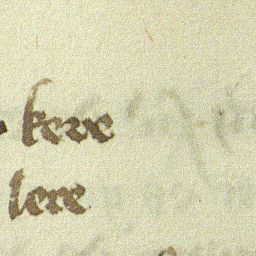 keve
lere